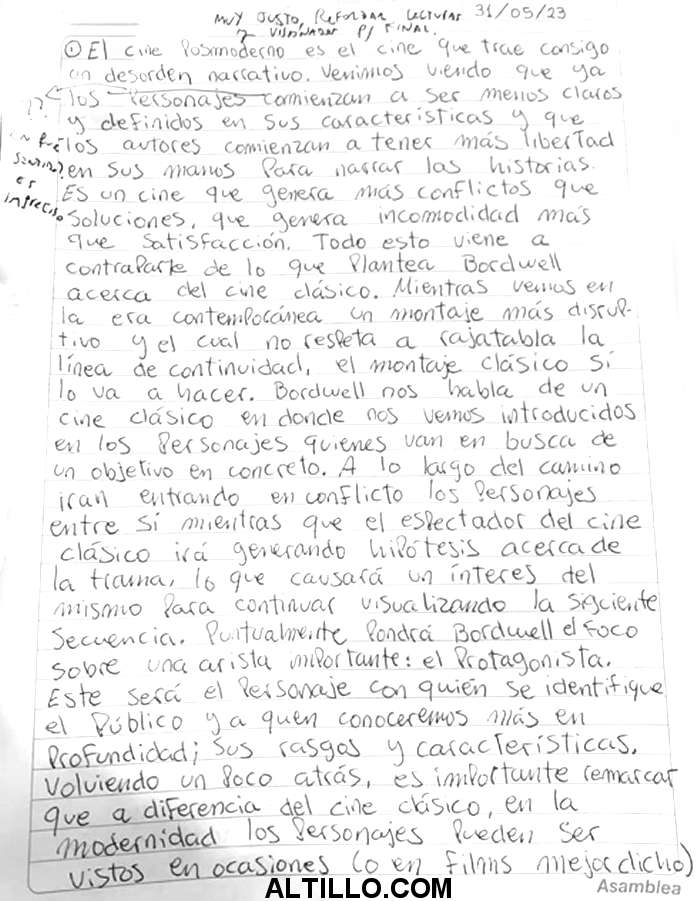 MUY JUSTO, REFORZAR LECTURAS 31/05/23
Y VISIONADOS P/ FINAL.
① El cine Posmoderno es el cine que trae consigo
un desorden narrativo. Venimos viendo que ya
¿?
los Personajes comienzan a ser menos claros
y definidos en sus características y que
los autores comienzan a tener más libertad
en qué
sentido?
es
impreciso
en sus manos Para narrar las historias.
Es un cine que genera más conflictos que
soluciones, que genera incomodidad más
que satisfacción. Todo esto viene a
contraParte de lo que Plantea Bordwell
acerca del cine clásico. Mientras vemos en
la era contemporánea un montaje más disrup-
tivo y el cual no respeta a rajatabla la
línea de continuidad, el montaje clásico sí
lo va a hacer. Bordwell nos habla de un
cine clásico en donde nos vemos introducidos
en los Personajes quienes van en busca de
un objetivo en concreto. A lo largo del camino
iran entrando en conflicto los Personajes
entre sí mientras que el espectador del cine
clásico irá generando hipótesis acerca de
la trama, lo que causará un ínteres del
mismo Para continuar visualizando la siguiente
secuencia. Puntualmente Pondrá Bordwell el foco
sobre una arista importante: el Protagonista.
Este será el Personaje con quién se identifique
el Público y a quen conoceremos más en
Profundidad; sus rasgos y características.
Volviendo un Poco atrás, es importante remarcar
que a diferencia del cine clásico, en la
modernidad los Personajes Pueden ser
vistos en ocasiones (o en films mejor dicho)
ALTILLO.COM
Asamblea